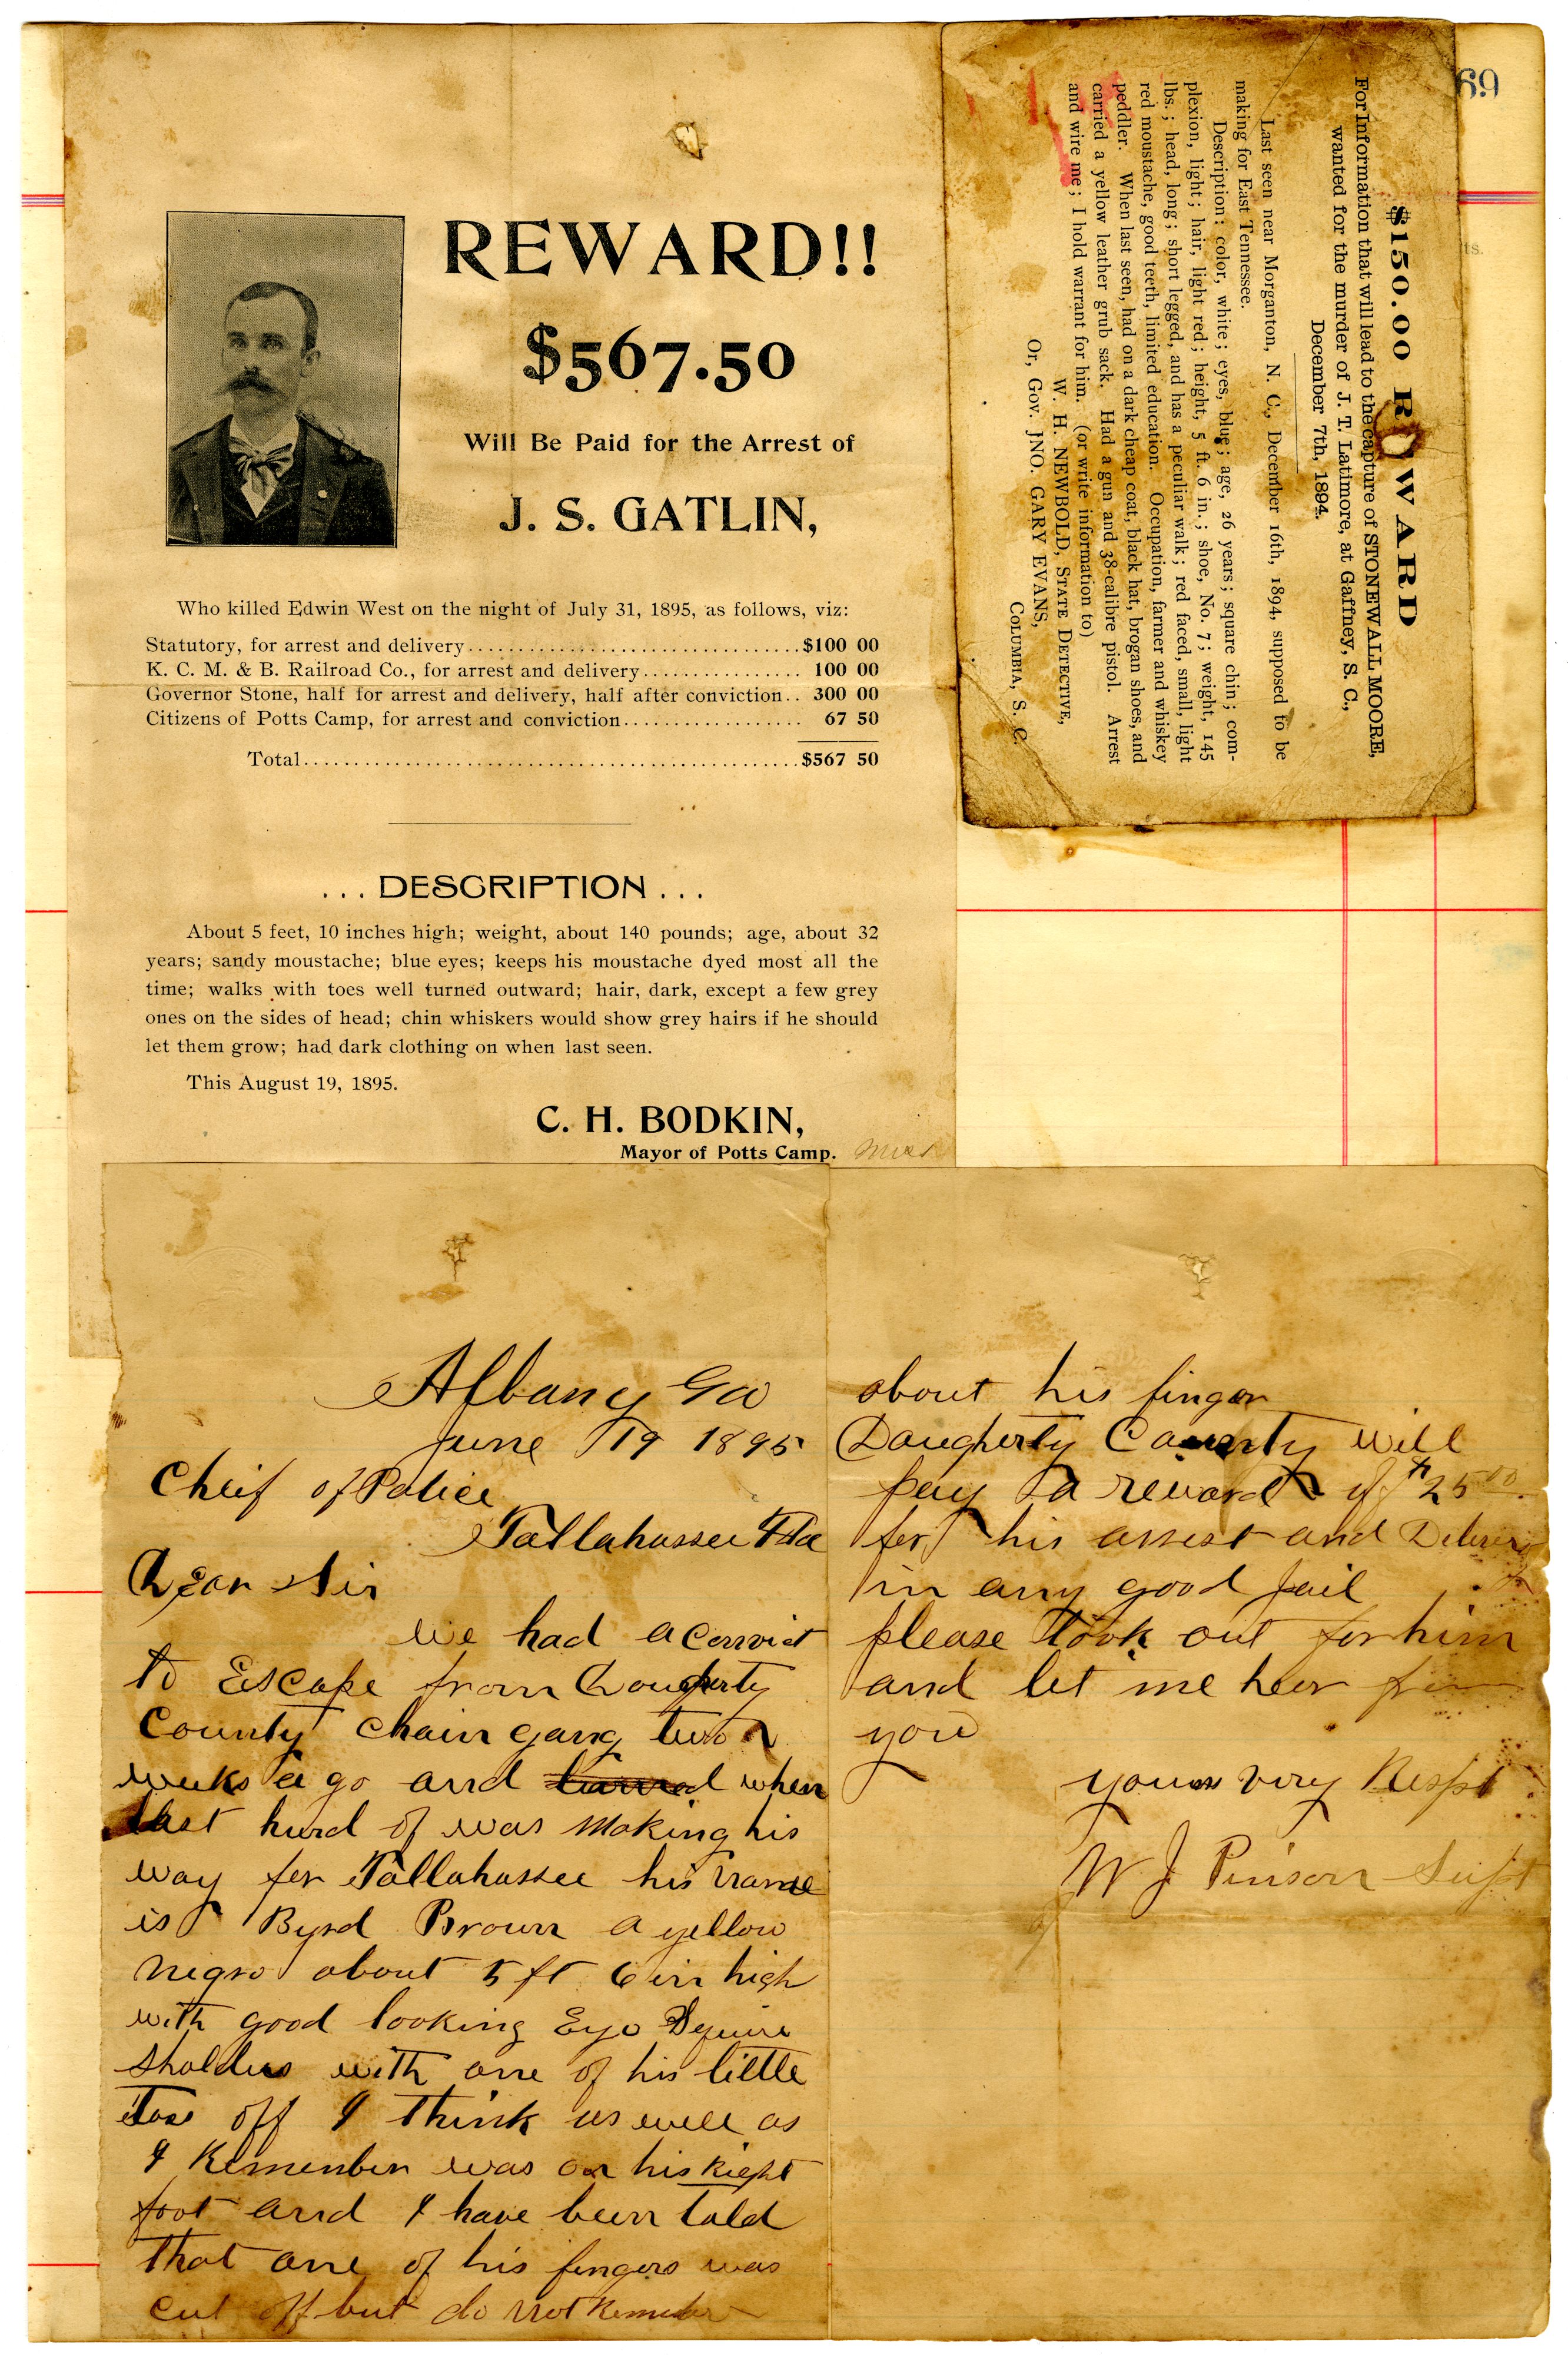 REWARD!!
$567.50
Will Be Paid for the Arrest of
J. S. GATLIN,
Who killed Edwin West on the night of July 31, 1895, as follows, viz:
Statutory, for arrest and delivery................................$100 00
K. C. M. & B. Railroad Co., for arrest and delivery................ 100 00
Governor Stone, half for arrest and delivery, half after conviction.. 300 00
Citizens of Potts Camp, for arrest and conviction.................. 67 50
Total................................................$567 50
. . . DESCRIPTION . . .
About 5 feet, 10 inches high; weight, about 140 pounds; age, about 32
years; sandy moustache; blue eyes; keeps his moustache dyed most all the
time; walks with toes well turned outward; hair, dark, except a few grey
ones on the sides of head; chin whiskers would show grey hairs if he should
let them grow; had dark clothing on when last seen.
This August 19, 1895.
C. H. BODKIN,
Mayor of Potts Camp. Miss
69
ts.
$150.00 REWARD
For Information that will lead to the capture of STONEWALL MOORE,
wanted for the murder of J. T. Latimore, at Gaffney, S. C.,
December 7th, 1894.
Last seen near Morganton, N. C., December 16th, 1894, supposed to be
making for East Tennessee.
Description: color, white; eyes, blue; age, 26 years; square chin; com-
plexion, light; hair, light red; height, 5 ft. 6 in.; shoe, No. 7; weight, 145
lbs.; head, long; short legged, and has a peculiar walk; red faced, small, light
red moustache, good teeth, limited education. Occupation, farmer and whiskey
peddler. When last seen, had on a dark cheap coat, black hat, brogan shoes, and
carried a yellow leather grub sack. Had a gun and 38-calibre pistol. Arrest
and wire me; I hold warrant for him. (or write information to)
W. H. NEWBOLD, STATE DETECTIVE,
Or, Gov. JNO. GARY EVANS,
COLUMBIA, S. C.
Albany Ga
June 19 1895
Cheif of Police
Tallahassee Fla
Dear Sir
we had a convict
to Escape from Dougherty
County chain gang two
weeks a go and when
last hurd of was making his
way for Tallahassee his name
is Byrd Brown a yellow
negro about 5 ft 6 in high
with good looking Eye Squire
sholders with one of his little
toes off I think as well as
I Remember was on his Right
foot and I have been told
that one of his fingers was
cut off but do not Remember
about his finger
Daugherty County will
pay a reward of $25 00
for his arrest and Deliver
in any good jail
please look out for him
and let me heer from
you
yours very Respt
W J Pinson Supt